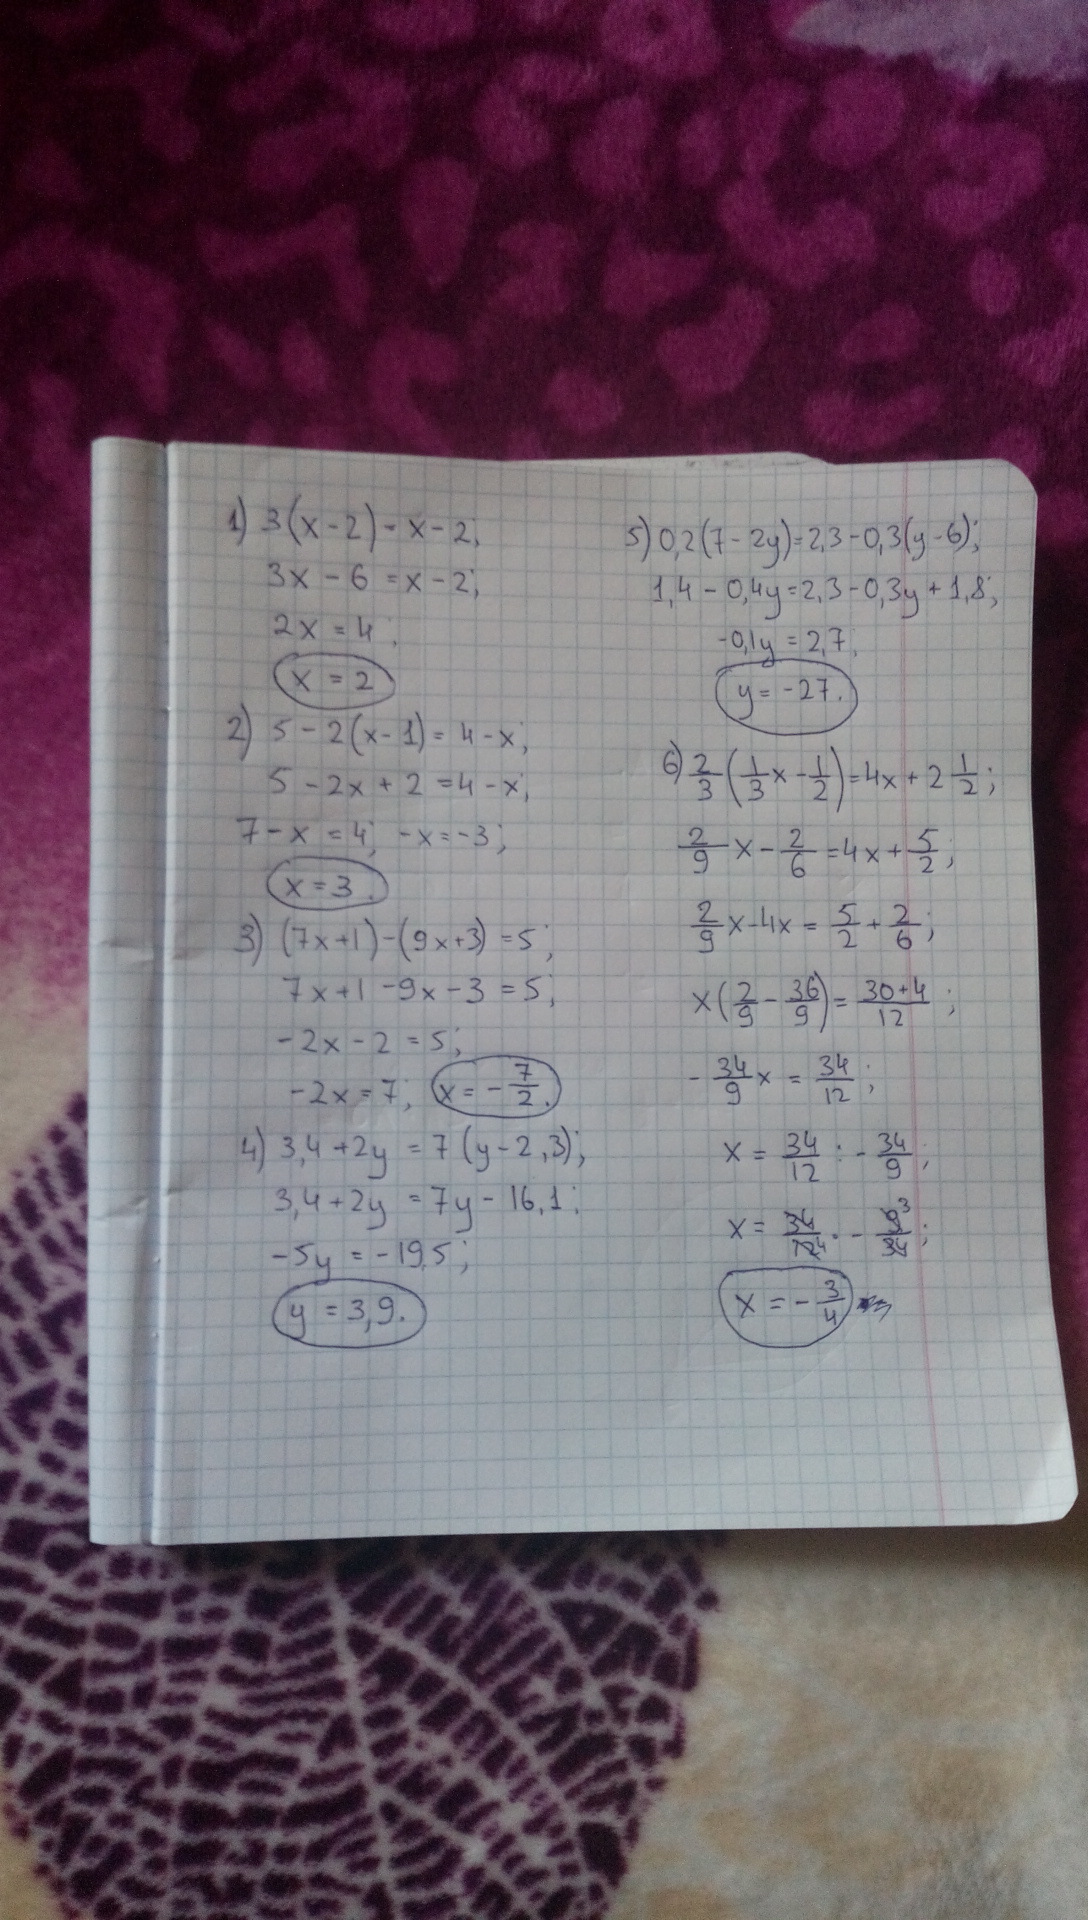 1) 3(x - 2) = x - 2;
3x - 6 = x - 2;
2x = 4;
x = 2
2) 5 - 2(x - 1) = 4 - x;
5 - 2x + 2 = 4 - x;
7 - x = 4; -x = -3;
x = 3.
3) (7x + 1) - (9x + 3) = 5;
7x + 1 - 9x - 3 = 5;
-2x - 2 = 5;
-2x = 7; x = -7/2.
4) 3,4 + 2y = 7(y - 2,3);
3,4 + 2y = 7y - 16,1;
-5y = -19,5;
y = 3,9.
5) 0,2(7 - 2y) = 2,3 - 0,3(y - 6);
1,4 - 0,4y = 2,3 - 0,3y + 1,8;
-0,1y = 2,7;
y = -27.
6) 2/3 (1/3 x - 1/2) = 4x + 2 1/2;
2/9 x - 2/6 = 4x + 5/2;
2/9 x - 4x = 5/2 + 2/6;
x(2/9 - 36/9) = 30+4/12;
-34/9 x = 34/12;
x = 34/12 : -34/9;
x = 34/12 4 · -9 3/34;
x = -3/4